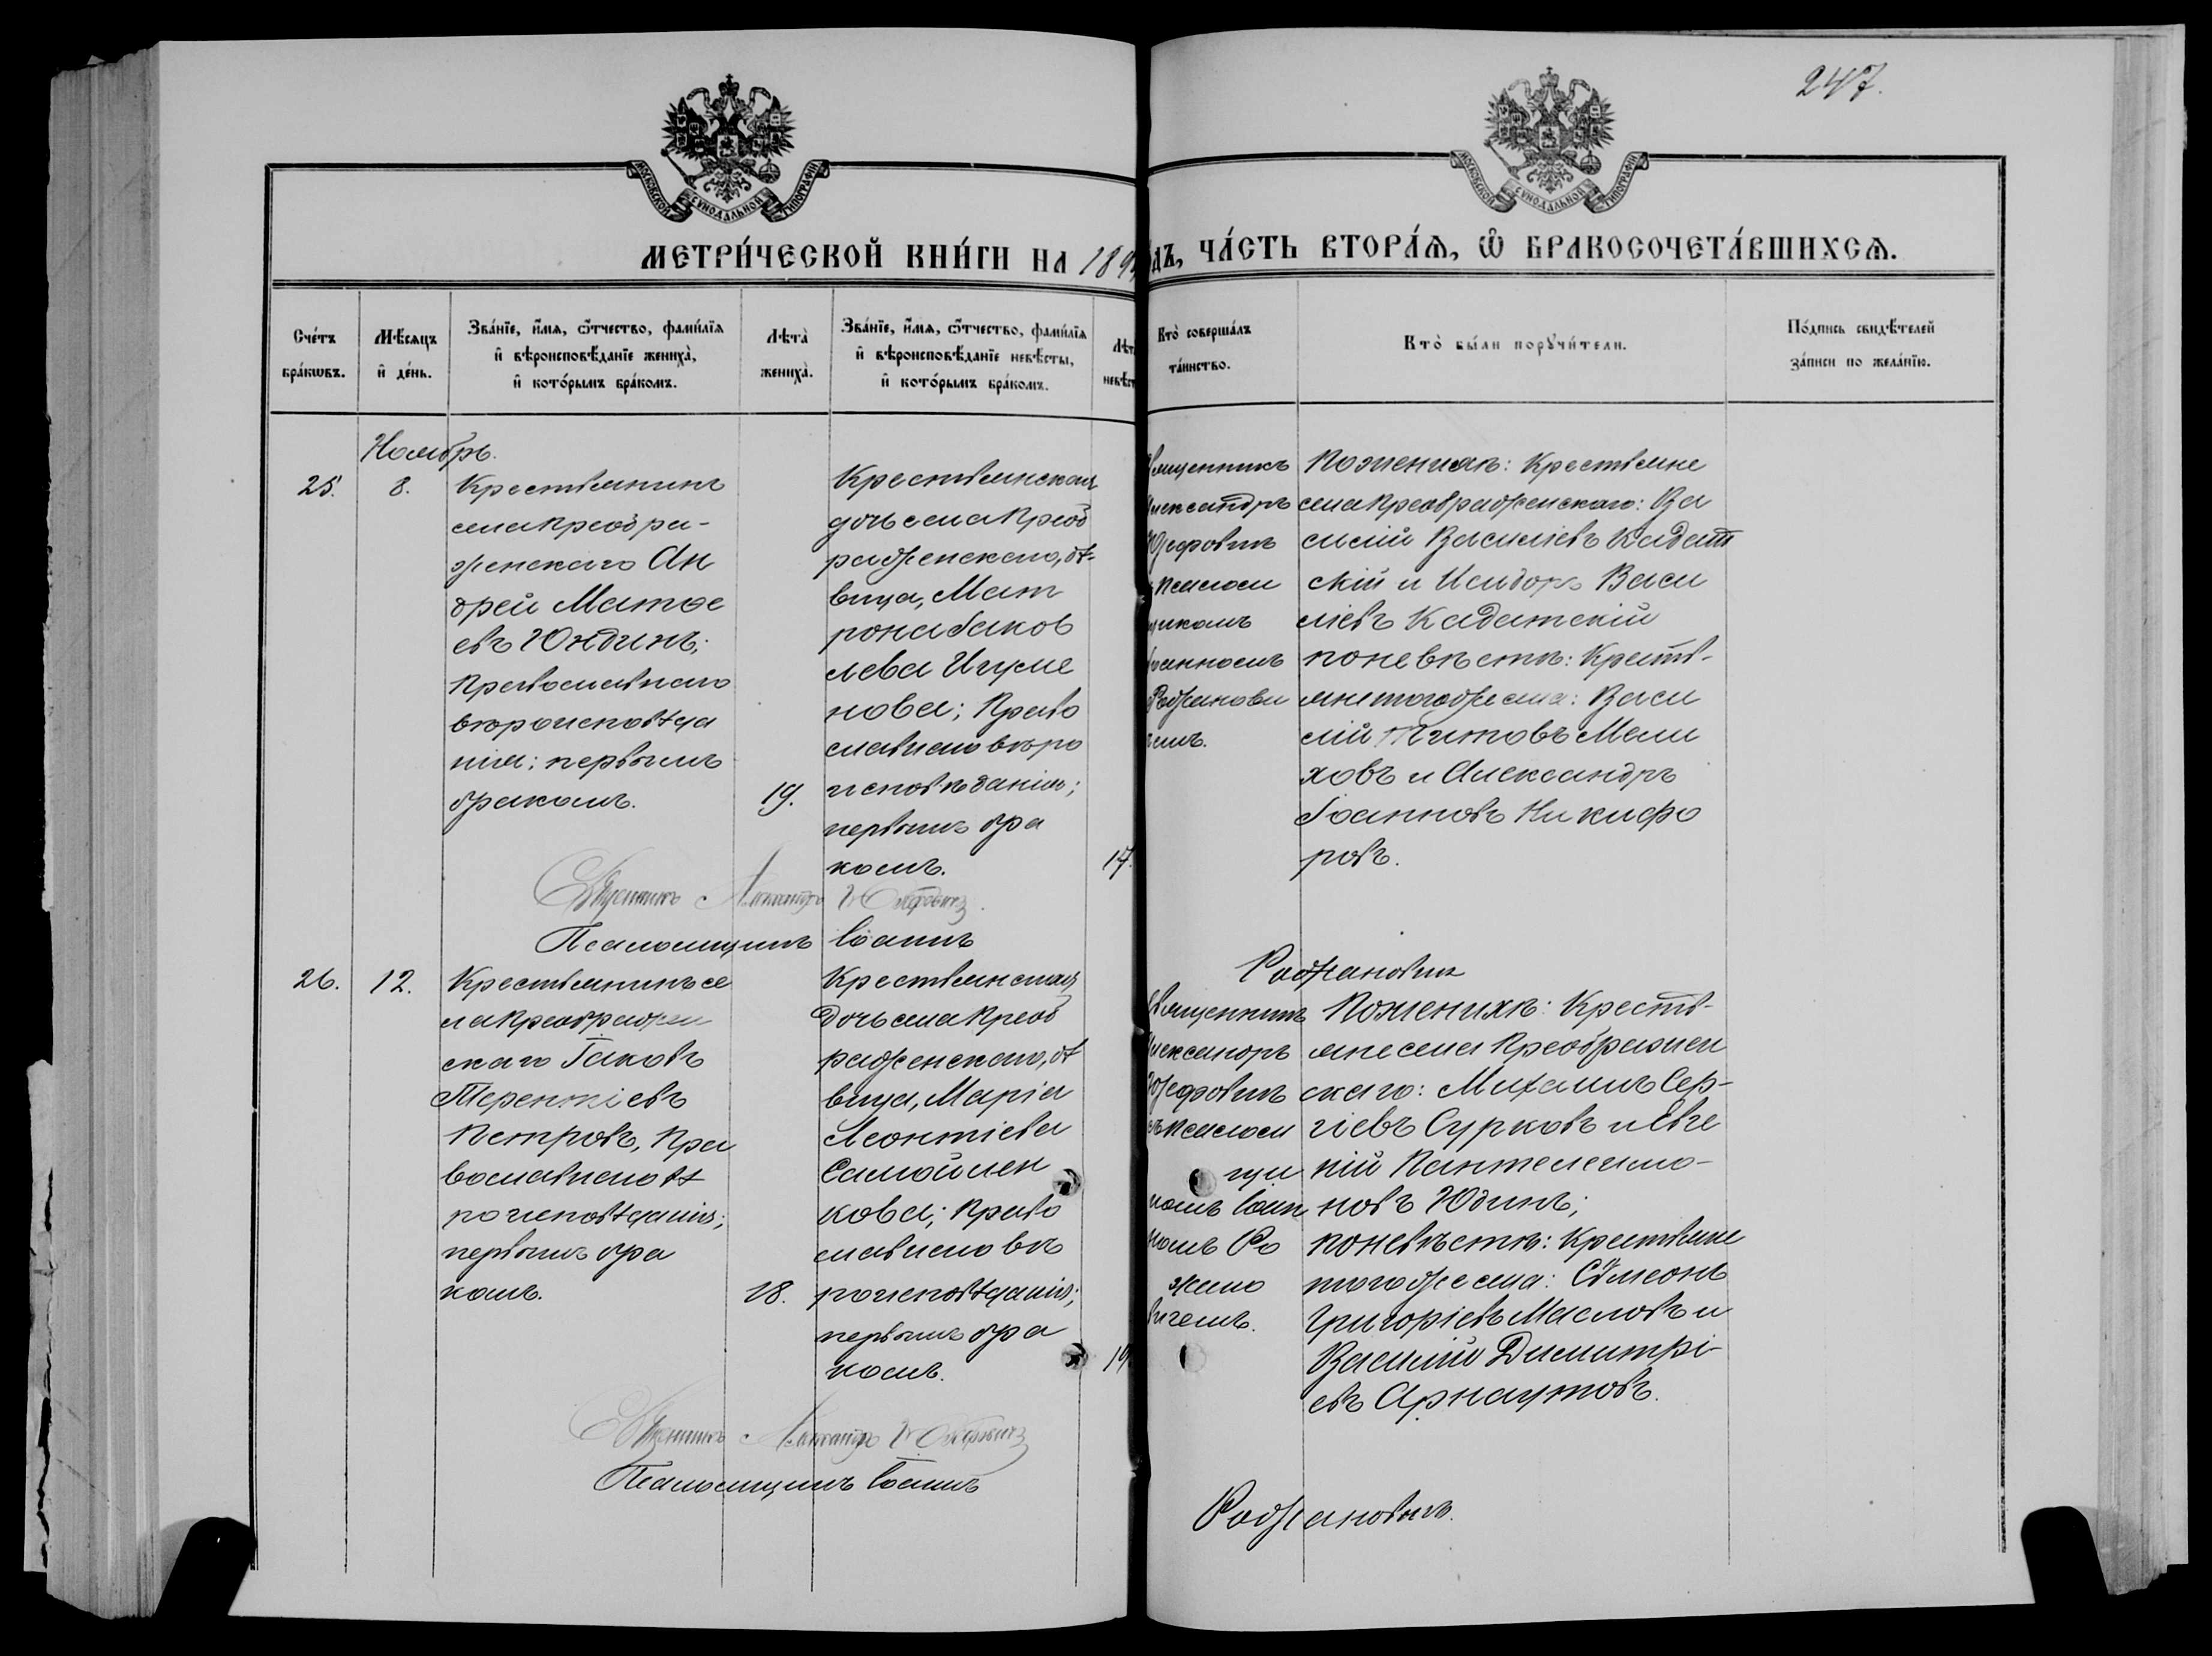 247.
МОСКОВСКОЙ СУНОДАЛЬНОЙ ТИПОГРАФІИ
МОСКОВСКОЙ СУНОДАЛЬНОЙ ТИПОГРАФІИ
МЕТРИ́ЧЕСКОЙ КНИ́ГИ НА 189
дъ, ЧА́СТЬ ВТОРА́Ѧ, Ѽ БРАКОСОЧЕТА́ВШИХСѦ.
Сче́тъ
бра́кωвъ.
Мѣ́сяцъ
и҆ де́нь.
Зва́нїе, и҆́мѧ, ѻ҆́тчество, фами́лїѧ
и҆ вѣроисповѣ́данїе жениха̀,
и҆ кото́рымъ бра́комъ.
Лѣта̀
жениха̀.
Зва́нїе, и҆́мѧ, ѻ҆́тчество, фами́лїѧ
и҆ вѣроисповѣ́данїе невѣ́сты,
и҆ кото́рымъ бра́комъ.
Лѣт
невѣс
Кто̀ соверша́лъ
та́инство.
Кто̀ бы́ли порꙋчи́тели.
По́дпись свидѣ́телей
за́писи по жела́нїю.
Ноябрь.
25.
8.
Крестьянинъ
села Преобра-
женскаго Ан
дрей Матѳе
евъ Юндинъ;
Православнаго
вѣроисповѣда
нія; первымъ
бракомъ.
19.
Крестьянская
дочь села Преоб
раженскаго, дѣ-
вица, Мат
рона Іаков
лева Игуме
нова; Право
славнаго вѣро
исповѣданія;
первымъ бра
комъ.
17.
вященникъ
лександръ
Юзефовичъ
псалом
щикомъ
оанномъ
Рожанови
чемъ.
По женихѣ: Крестьяне
села Преображенскаго: Ва
силій Васильевъ Кадат
скій и Исидоръ Васи
ліевъ Кадатскій
по невѣстѣ: Кресть-
яне того же села: Васи
лій Титовъ Мали
ховъ и Александръ
Іоанновъ Никифо
ровъ.
Священникъ Александръ Юзефовичъ.
Псаломщикъ Іоаннъ
Рожановичъ
26.
12.
Крестьянинъ се
ла Преображен
скаго Іаковъ
Терентіевъ
Петровъ, Пра
вославнаго вѣ
роисповѣданія;
первымъ бра
комъ.
18.
Крестьянская
Дочь села Преоб
раженскаго, дѣ
вица, Марія
Леонтіева
Самойлен
кова; Право
славнаго вѣ
роисповѣданія;
первымъ бра
комъ.
вященникъ
лександръ
Юзефовичъ
съ псалом
щи
комъ Іоан
номъ Ро
жано
вичемъ.
По женихѣ: Кресть-
яне села Преображен
скаго: Михаилъ Сер-
гіевъ Сурковъ и Евге
ній Пантелеимо-
новъ Юдинъ;
по невѣстѣ: Крестьяне
того же села: Сѵмеонъ
Григоріевъ Масловъ и
Василій Димитрі-
евъ Арнаутовъ.
Священникъ Александръ Юзефовичъ
Псаломщикъ Іоаннъ
Рожановичъ.